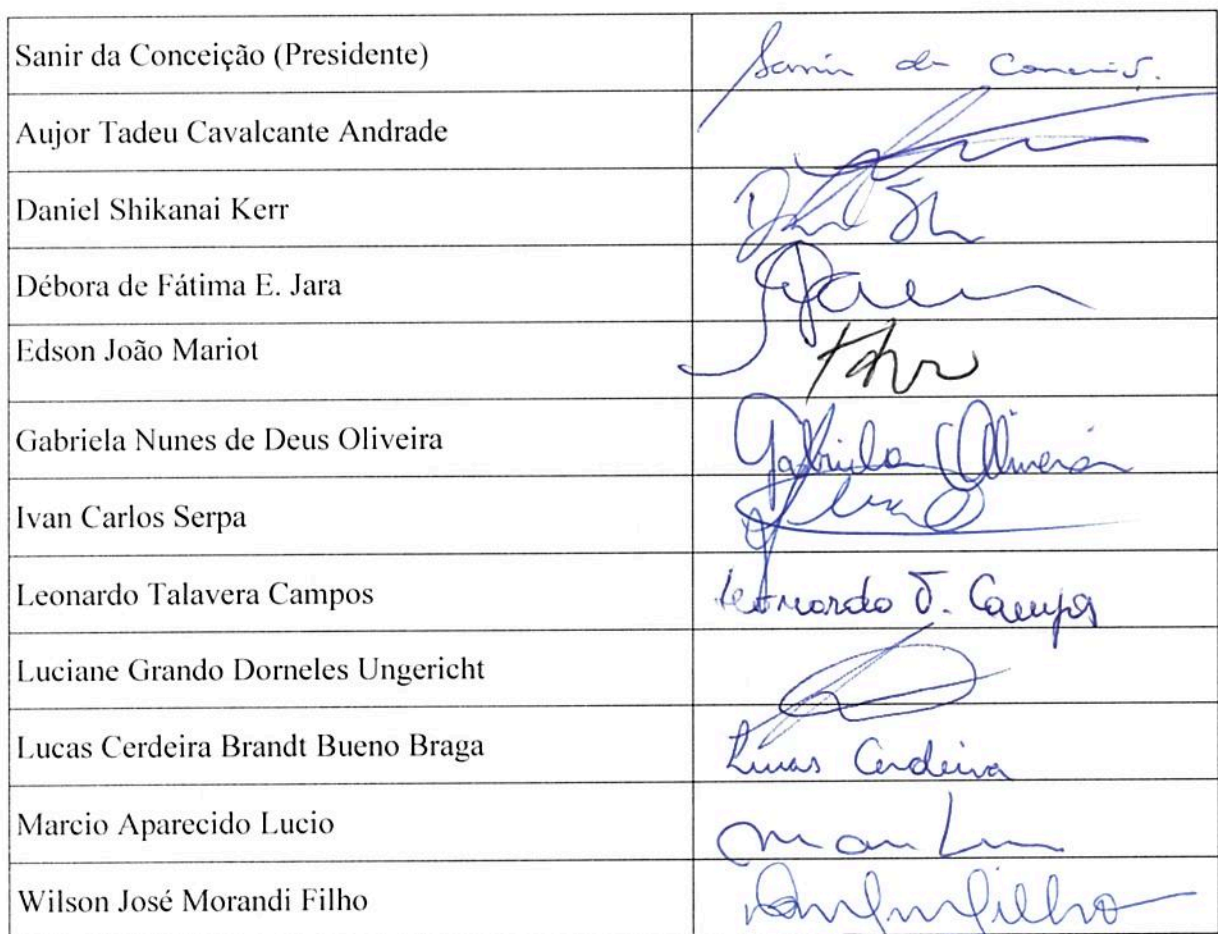 Sanir da Conceição (Presidente) Sanir da
Aujor Tadeu Cavalcante Andrade
Daniel Shikanai Kerr
Débora de Fátima E. Jara
Edson João Mariot
Gabriela Nunes de Deus Oliveira Gabriela Oliveira
Ivan Carlos Serpa
Leonardo Talavera Campos Leonardo T. Campos
Luciane Grando Dorneles Ungericht
Lucas Cerdeira Brandt Bueno Braga Lucas Cerdeira
Marcio Aparecido Lucio
Wilson José Morandi Filho